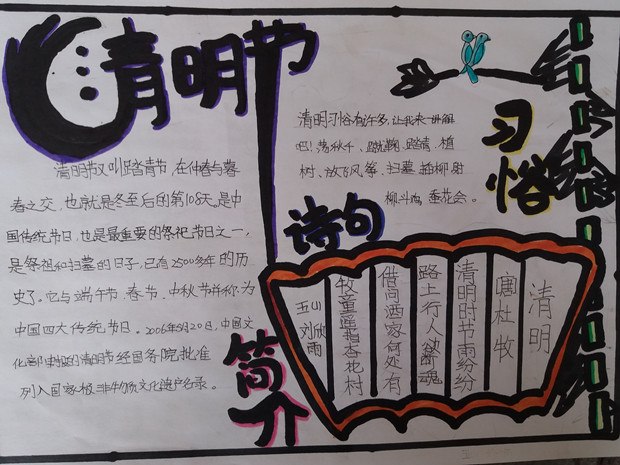 清明节
清明节又叫踏青节,在仲春与暮
春之交,也就是冬至后的第108天。是中
国传统节日,也是最重要的祭祀节日之一,
是祭祖和扫墓的日子,已有2500多年的历
史了。它与端午节、春节、中秋节并称为
中国四大传统节日。2006年5月20日,中国文
化部申报的清明节经国务院批准
列入国家级非物质文化遗产名录。
简介
清明习俗有许多,让我来一一讲解
吧!荡秋千、蹴鞠、踏青、植
树、放飞风筝、扫墓、插柳、射
柳、斗鸡、蚕花会。
习俗
诗句
清明
唐杜牧
清明时节雨纷纷
路上行人欲断魂
借问酒家何处有
牧童遥指杏花村
五(4)
刘欣雨